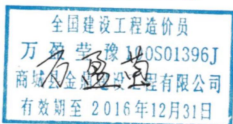 全国建设工程造价员
万盈莹 豫100S01396J
商城县 程有限公司
有效期至 2016年12月31日